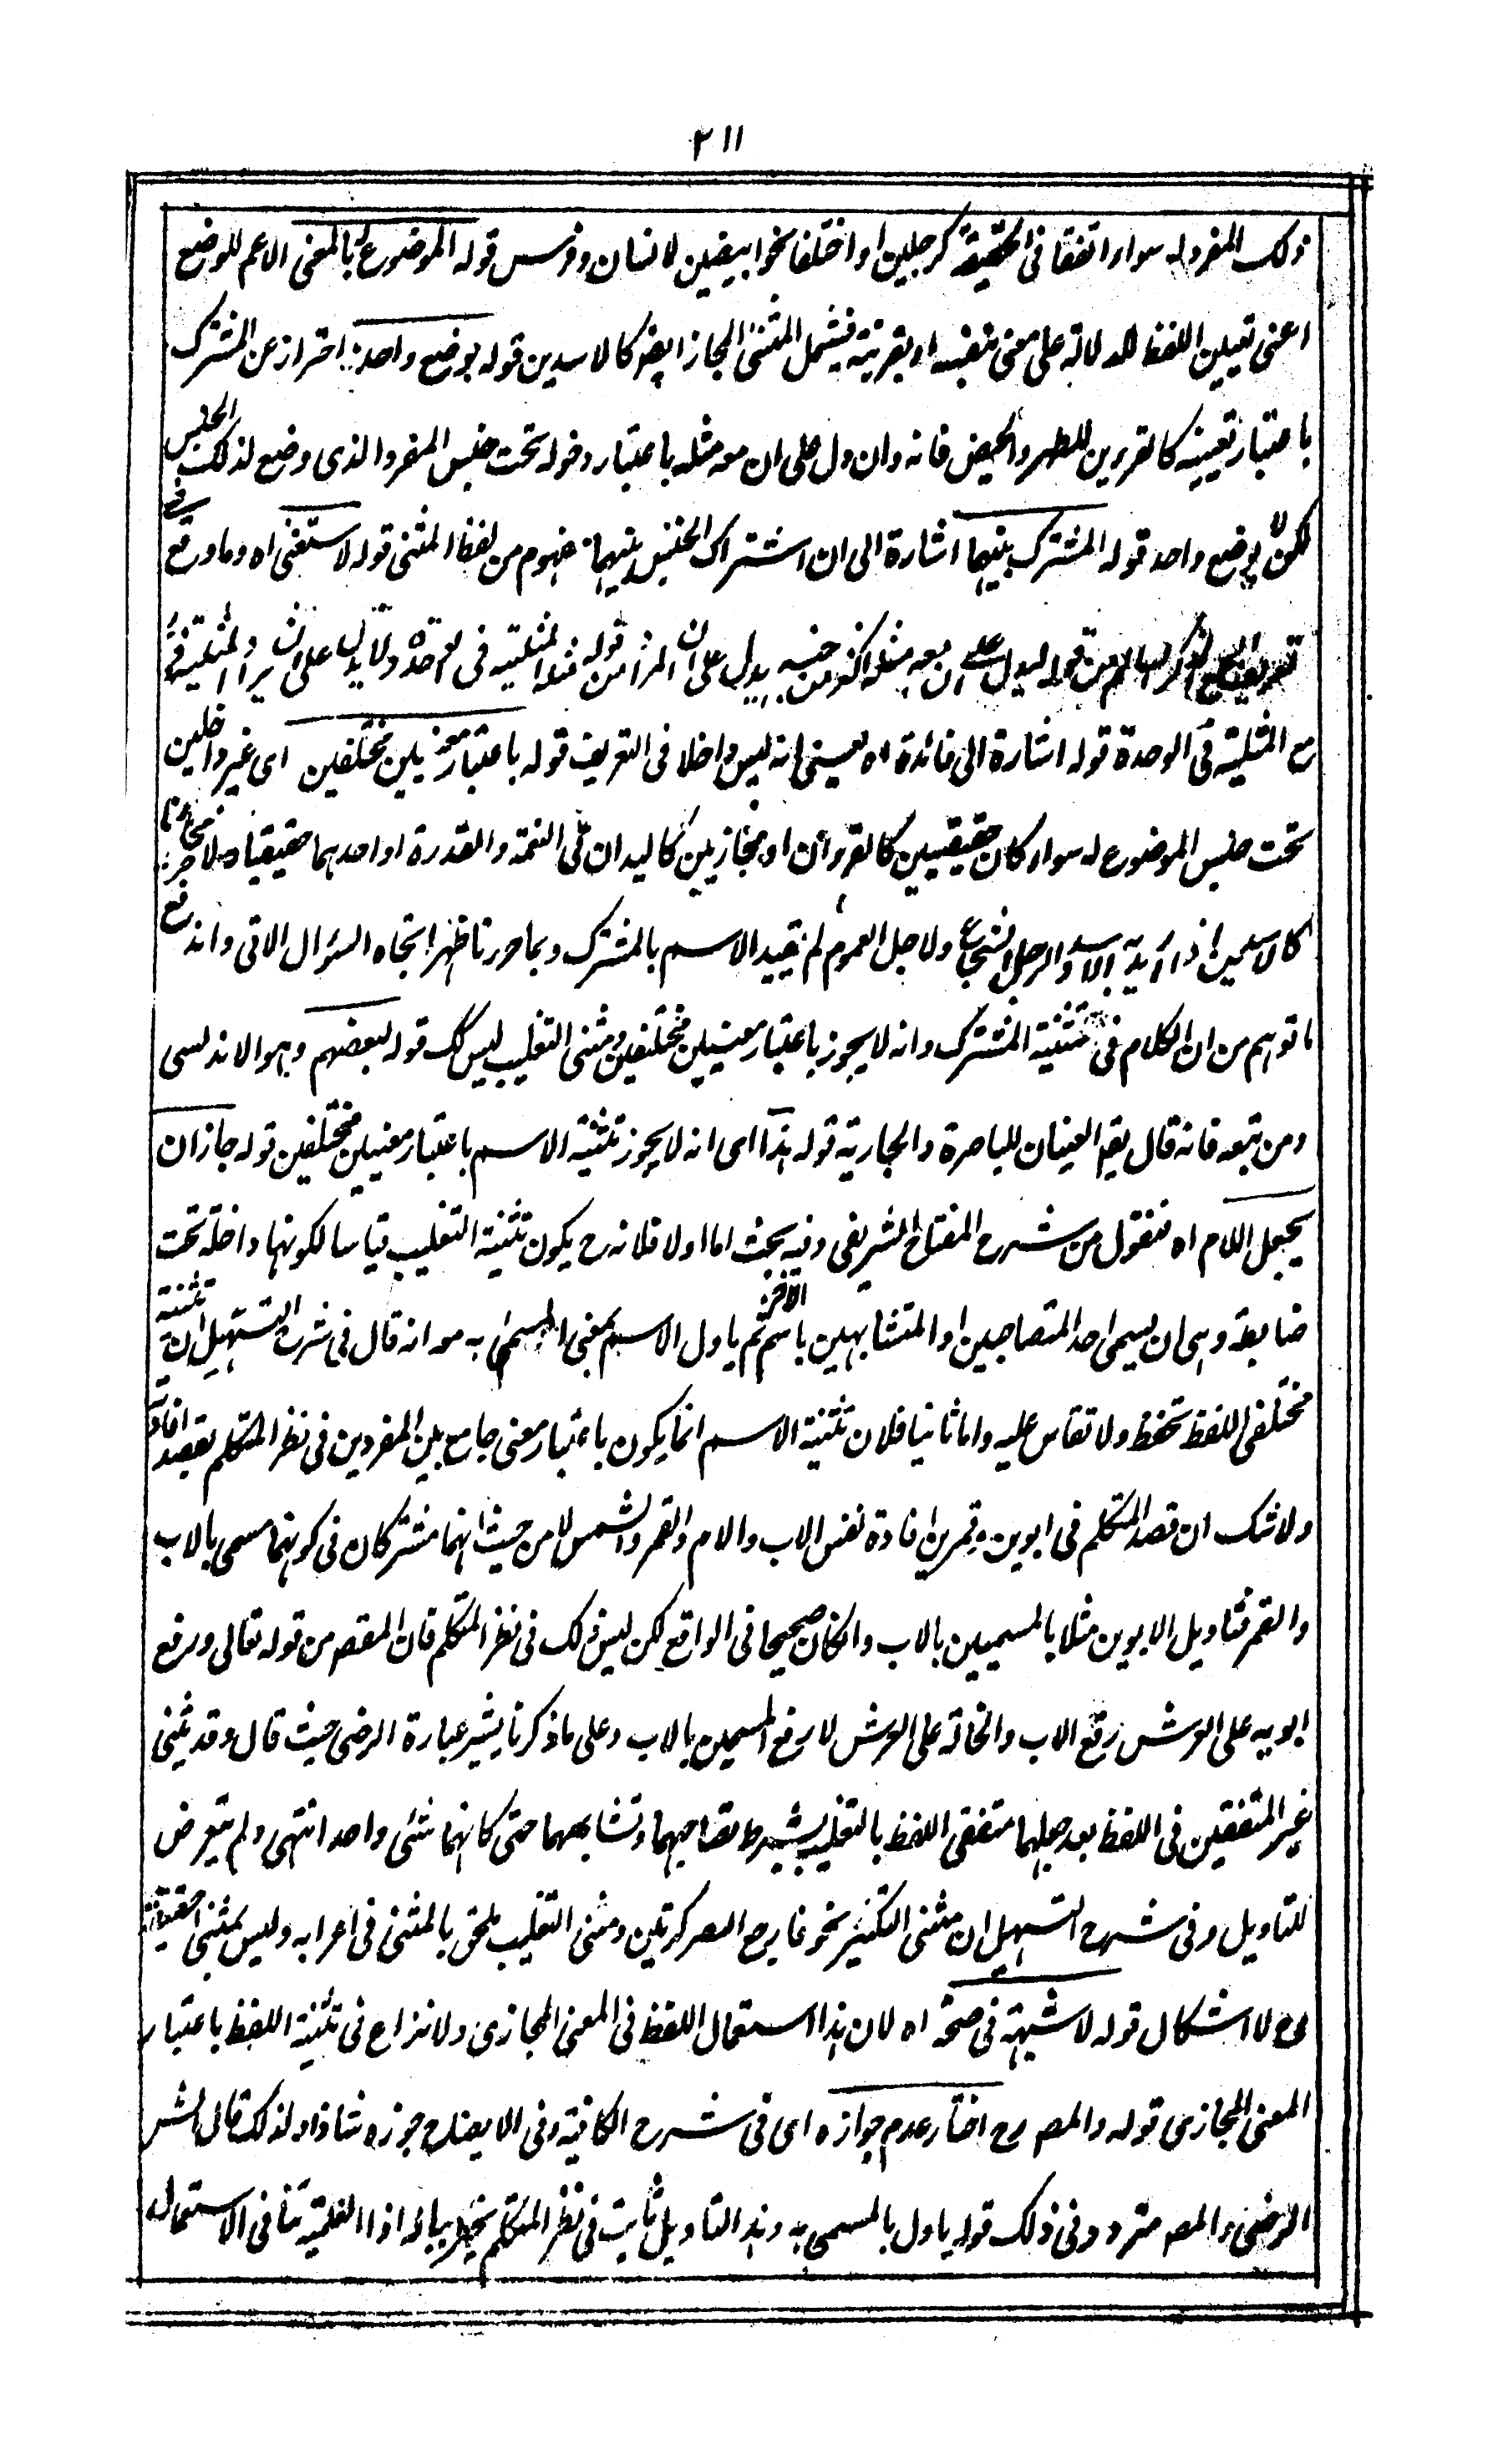 ٢١١
ذلك المفرد له سواء اتفقا فى الحقيقة كرجلين او اختلفا نحو ابيضين لانسان وفرس قوله الموضوع بالمعنى الاعم للوضع
اعنى تعيين اللفظ للدلالة على معنى بنفسه او بقرينة فيشمل المثنى المجاز ايضو كالاسدين قوله بوضع واحد احتراز عن المشترك
باعتبار تعيينه كالقرءين للطهر والحيض فانه وان دل على ان معه مثله باعتبار دخوله تحت جنس المفرد الذى وضع لذلك الجنس
لكن لا بوضع واحد قوله المشترك بينهما اشارة الى ان اشتراك الجنس بينهما مفهوم من لفظ المثنى قوله لاستغنى اه وما وقع فى
قوله ليدل على ان معه مثله من جنسه يدل على ان المراد من قوله مثله المثلية فى الوحدة ولا يدل على ان يراد المثلية فى
مع المثلية فى الوحدة قوله اشارة الى فائدة اه يعنى انه ليس داخلا فى التعريف قوله باعتبار معنيين مختلفين اى غير داخلين
تحت جنس الموضوع له سواء كان حقيقيين كالقرءان او مجازيين كاليدان فى النعمة والقدرة او احدهما حقيقيا والاخر مجازيا
كالاسدين اذا اريد به الاسد والرجل الشجاع ولاجل العموم لم يقيد الاسم بالمشترك وبما حررنا ظهر اتجاه السؤال الاتى واندفع
ما توهم من ان الكلام فى تثنية المشترك وانه لا يجوز باعتبار معنيين مختلفين ومثنى التغليب ليس كك قوله لبعضهم وهو الاندلسى
ومن تبعه فانه قال يقو العينان للباصرة والجارية قوله هذا اى انه لا يجوز تثنية الاسم باعتبار معنيين مختلفين قوله جاز ان
يجعل اللام اه منقول من شرح المفتاح الشريفى وفيه بحث اما اولا فلانه ح يكون تثنية التغليب قياسا لكونها داخلة تحت
ضابطة وهى ان يسمى احد المتصاحبين او المتشابهين باسم الاخر ثم ياول الاسم بمعنى المسمى به مع انه قال فى شرح التسهيل ان تثنية
مختلفى اللفظ تحفظ ولا تقاس عليه واما ثانيا فلان تثنية الاسم انما يكون باعتبار معنى جامع بين المفردين فى نظر المتكلم بقصد افادته
ولا شك ان قصد المتكلم فى ابوين وقمرين افادة نفس الاب والام والقمر والشمس لا من حيث انهما مشتركان فى كونهما مسمى بالاب
والقمر فتاويل الابوين مثلا بالمسميين بالاب وان كان صحيحا فى الواقع لكن ليس ذلك فى نظر المتكلم فان المقصو من قوله تعالى ورفع
ابويه على العرش رفع الاب والخالة على العرش لا رفع المسميين بالاب وعلى ما ذكرنا يشير عبارة الرضى حيث قال وقد يثنى
غير المتفقين فى اللفظ بعد جعلهما متفقى اللفظ بالتغليب بشرط تصاحبهما وتشابههما حتى كانهما شئ واحد انتهى ولم يتعرض
للتاويل وفى شرح التسهيل ان مثنى التكثير نحو فارجع البصر كرتين ومثنى التغليب ملحق بالمثنى فى اعرابه وليس بمثنى حقيقة
وح لا اشكال قوله لا شبهة فى صحة اه لان هذا استعمال اللفظ فى المعنى المجازى ولا نزاع فى تثنية اللفظ باعتبار
المعنى المجازى قوله والمصـ رح اختار عدم جوازه اى فى شرح الكافية وفى الايضاح جوزه شاذا ولذلك قال الشـ
الرضى والمصـ متردد فى ذلك قوله ياول بالمسمى به وهذا التاويل ثابت فى نظر المتكلم يخطر بباله اذ العلمية تنافى الاستعمال